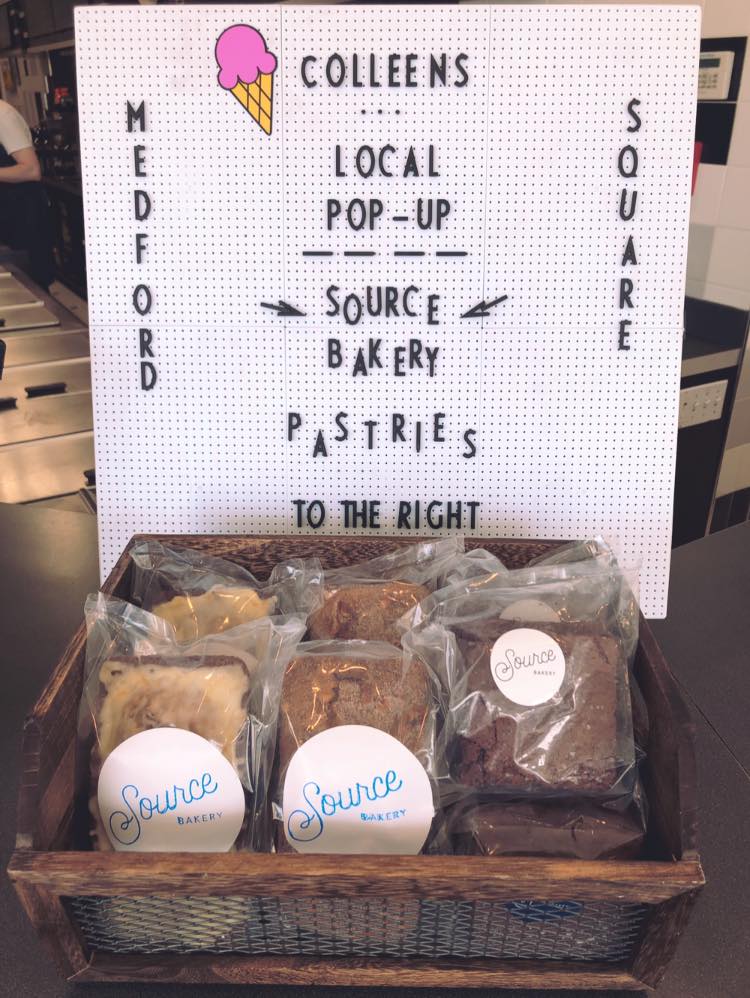 COLLEENS
...
LOCAL
POP-UP
SOURCE
BAKERY
PASTRIES
TO THE RIGHT
MEDFORD
SQUARE
Source
BAKERY
Source
BAKERY
Source
BAKERY